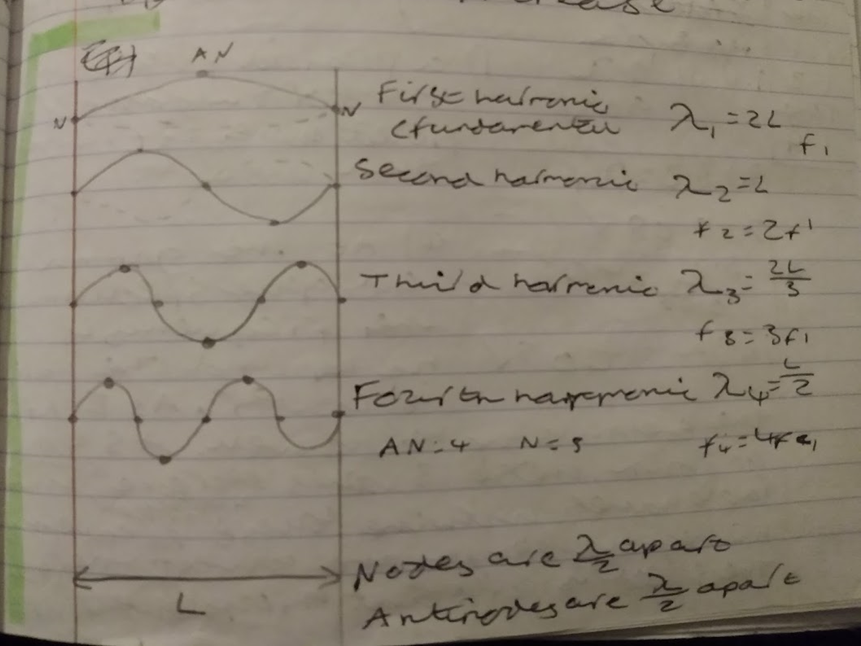 AN
N
N
First harmonic
(fundamental
λ₁ = 2L
f₁
Second harmonic λ₂ = L
f2 = 2f¹
Third harmonic λ₃ = 2L/3
f3 = 3f₁
Fourth harmonic λ₄ = L/2
AN = 4 N = 5 f₄ = 4f₁
Nodes are λ/2 apart
Antinodes are λ/2 apart
L